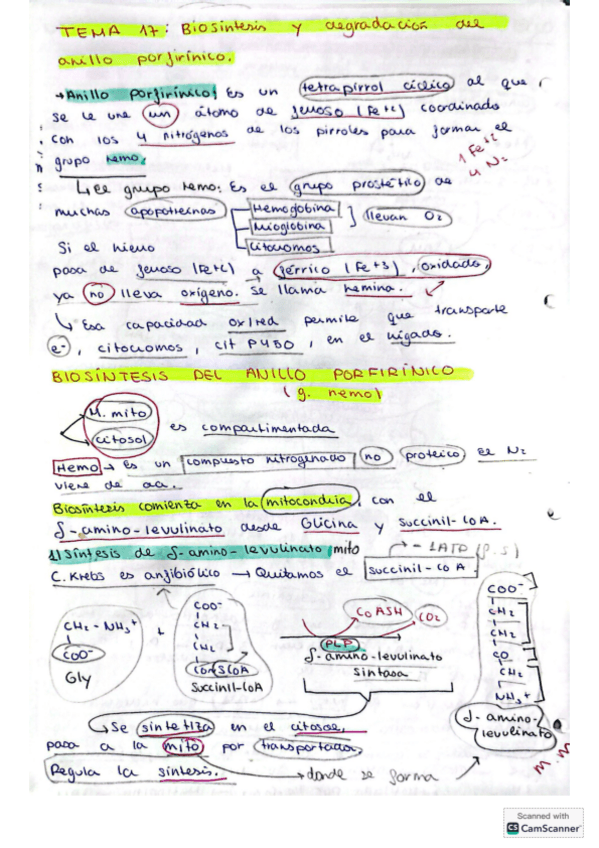 TEMA 17: Biosíntesis y degradación del
anillo porfirínico.
→Anillo porfirínico: Es un tetrapirrol cíclico al que
se le une un átomo de ferroso (Fe+2) coordinado
con los 4 nitrógenos de los pirroles para formar el
grupo hemo.
1 Fe+2
4 N2
↳ El grupo hemo: Es el grupo prostético de
muchas apoproteínas
Hemoglobina
Mioglobina
Citocromos
llevan O2
Si el hierro
pasa de ferroso (Fe+2) a férrico (Fe+3), oxidado,
ya no lleva oxígeno. Se llama hemina.
↳ Esa capacidad ox/red permite que transporte
e-, citocromos, cit P450, en el hígado.
BIOSÍNTESIS DEL ANILLO PORFIRÍNICO
(g. hemo)
M. mito
citosol
es compartimentada
Hemo → Es un compuesto nitrogenado no proteico el N2
viene de aa.
Biosíntesis comienza en la mitocondria, con el
δ-amino-levulinato desde Glicina y succinil-CoA.
1) Síntesis de δ-amino-levulinato mito
→ - 1ATP (P.S)
C. Krebs es anfibiólico → Quitamos el succinil-CoA
CH2 - NH3+
COO-
Gly
+
COO-
CH2
CH2
CO~SCoA
Succinil-CoA
CoASH
CO2
PLP
δ-amino-levulinato
sintasa
COO-
CH2
CH2
CO
CH2
NH3+
δ-amino-
levulinato
↳ Se sintetiza en el citosol,
pasa a la mito por transportador,
Regula la síntesis.
→ donde se forma
M.M
Scanned with
CS CamScanner